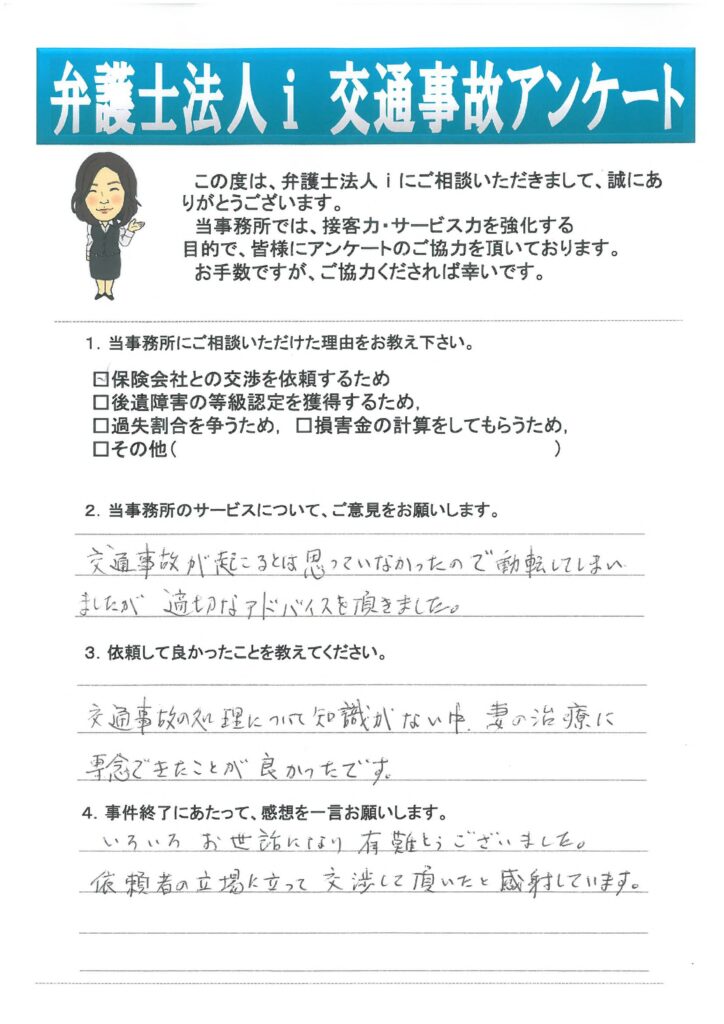 弁護士法人ｉ 交通事故アンケート
この度は、弁護士法人ｉにご相談いただきまして、誠にあ
りがとうございます。
当事務所では、接客力・サービス力を強化する
目的で、皆様にアンケートのご協力を頂いております。
お手数ですが、ご協力くだされば幸いです。
１．当事務所にご相談いただけた理由をお教え下さい。
☑保険会社との交渉を依頼するため
□後遺障害の等級認定を獲得するため，
□過失割合を争うため， □損害金の計算をしてもらうため，
□その他（ ）
２．当事務所のサービスについて、ご意見をお願いします。
交通事故が起こるとは思っていなかったので動転してしまい
ましたが 適切なアドバイスを頂きました。
３．依頼して良かったことを教えてください。
交通事故の処理について知識がない中、妻の治療に
専念できたことが良かったです。
４．事件終了にあたって、感想を一言お願いします。
いろいろ お世話になり 有難とうございました。
依頼者の立場に立って 交渉して頂いたと感謝しています。